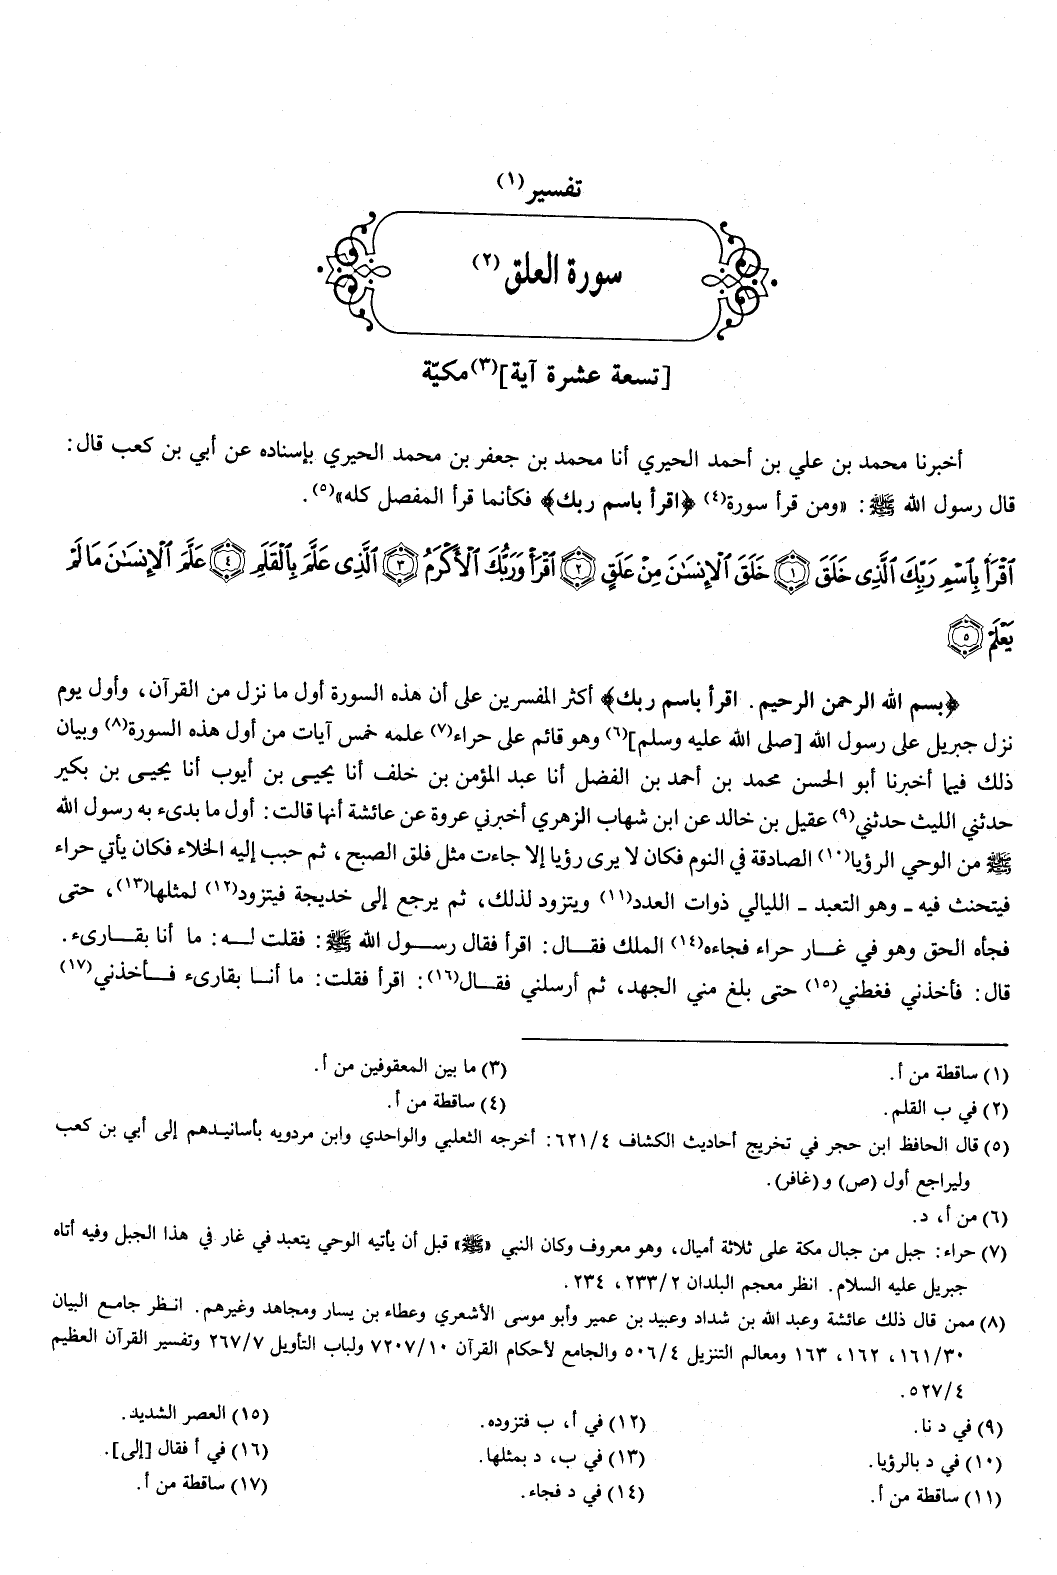 تفسير(١)
سورة العلق(٢)
[تسعة عشرة آية](٣) مكيّة
أخبرنا محمد بن علي بن أحمد الحيري أنا محمد بن جعفر بن محمد الحيري بإسناده عن أبي بن كعب قال:
قال رسول الله ﷺ: «ومن قرأ سورة(٤) ﴿اقرأ باسم ربك﴾ فكأنما قرأ المفصل كله»(٥).
ٱقۡرَأۡ بِٱسۡمِ رَبِّكَ ٱلَّذِى خَلَقَ ١ خَلَقَ ٱلۡإِنسَٰنَ مِنۡ عَلَقٍ ٢ ٱقۡرَأۡ وَرَبُّكَ ٱلۡأَكۡرَمُ ٣ ٱلَّذِى عَلَّمَ بِٱلۡقَلَمِ ٤ عَلَّمَ ٱلۡإِنسَٰنَ مَا لَمۡ
يَعۡلَمۡ ٥
﴿بسم الله الرحمن الرحيم. اقرأ باسم ربك﴾ أكثر المفسرين على أن هذه السورة أول ما نزل من القرآن، وأول يوم
نزل جبريل على رسول الله [صلى الله عليه وسلم](٦) وهو قائم على حراء(٧) علمه خمس آيات من أول هذه السورة(٨) وبيان
ذلك فيما أخبرنا أبو الحسن محمد بن أحمد بن الفضل أنا عبد المؤمن بن خلف أنا يحيى بن أيوب أنا يحيى بن بكير
حدثني الليث حدثني(٩) عقيل بن خالد عن ابن شهاب الزهري أخبرني عروة عن عائشة أنها قالت: أول ما بدىء به رسول الله
ﷺ من الوحي الرؤيا(١٠) الصادقة في النوم فكان لا يرى رؤيا إلا جاءت مثل فلق الصبح، ثم حبب إليه الخلاء فكان يأتي حراء
فيتحنث فيه ـ وهو التعبد ـ الليالي ذوات العدد(١١) ويتزود لذلك، ثم يرجع إلى خديجة فيتزود(١٢) لمثلها(١٣)، حتى
فجأه الحق وهو في غار حراء فجاءه(١٤) الملك فقال: اقرأ فقال رسول الله ﷺ: فقلت له: ما أنا بقارىء.
قال: فأخذني فغطني(١٥) حتى بلغ مني الجهد، ثم أرسلني فقال(١٦): اقرأ فقلت: ما أنا بقارىء فأخذني(١٧)
(١) ساقطة من أ.
(٢) في ب القلم.
(٣) ما بين المعقوفين من أ.
(٤) ساقطة من أ.
(٥) قال الحافظ ابن حجر في تخريج أحاديث الكشاف ٤/٦٢١: أخرجه الثعلبي والواحدي وابن مردويه بأسانيدهم إلى أبي بن كعب
وليراجع أول (ص) و (غافر).
(٦) من أ، د.
(٧) حراء: جبل من جبال مكة على ثلاثة أميال، وهو معروف وكان النبي «ﷺ» قبل أن يأتيه الوحي يتعبد في غار في هذا الجبل وفيه أتاه
جبريل عليه السلام. انظر معجم البلدان ٢/٢٣٣، ٢٣٤.
(٨) ممن قال ذلك عائشة وعبد الله بن شداد وعبيد بن عمير وأبو موسى الأشعري وعطاء بن يسار ومجاهد وغيرهم. انظر جامع البيان
٣٠/١٦١، ١٦٢، ١٦٣ ومعالم التنزيل ٤/٥٠٦ والجامع لأحكام القرآن ١٠/٧٢٠٧ ولباب التأويل ٧/٢٦٧ وتفسير القرآن العظيم
٤/٥٢٧.
(٩) في د نا.
(١٠) في د بالرؤيا.
(١١) ساقطة من أ.
(١٢) في أ، ب فتزوده.
(١٣) في ب، د بمثلها.
(١٤) في د فجاء.
(١٥) العصر الشديد.
(١٦) في أ فقال [إلى].
(١٧) ساقطة من أ.